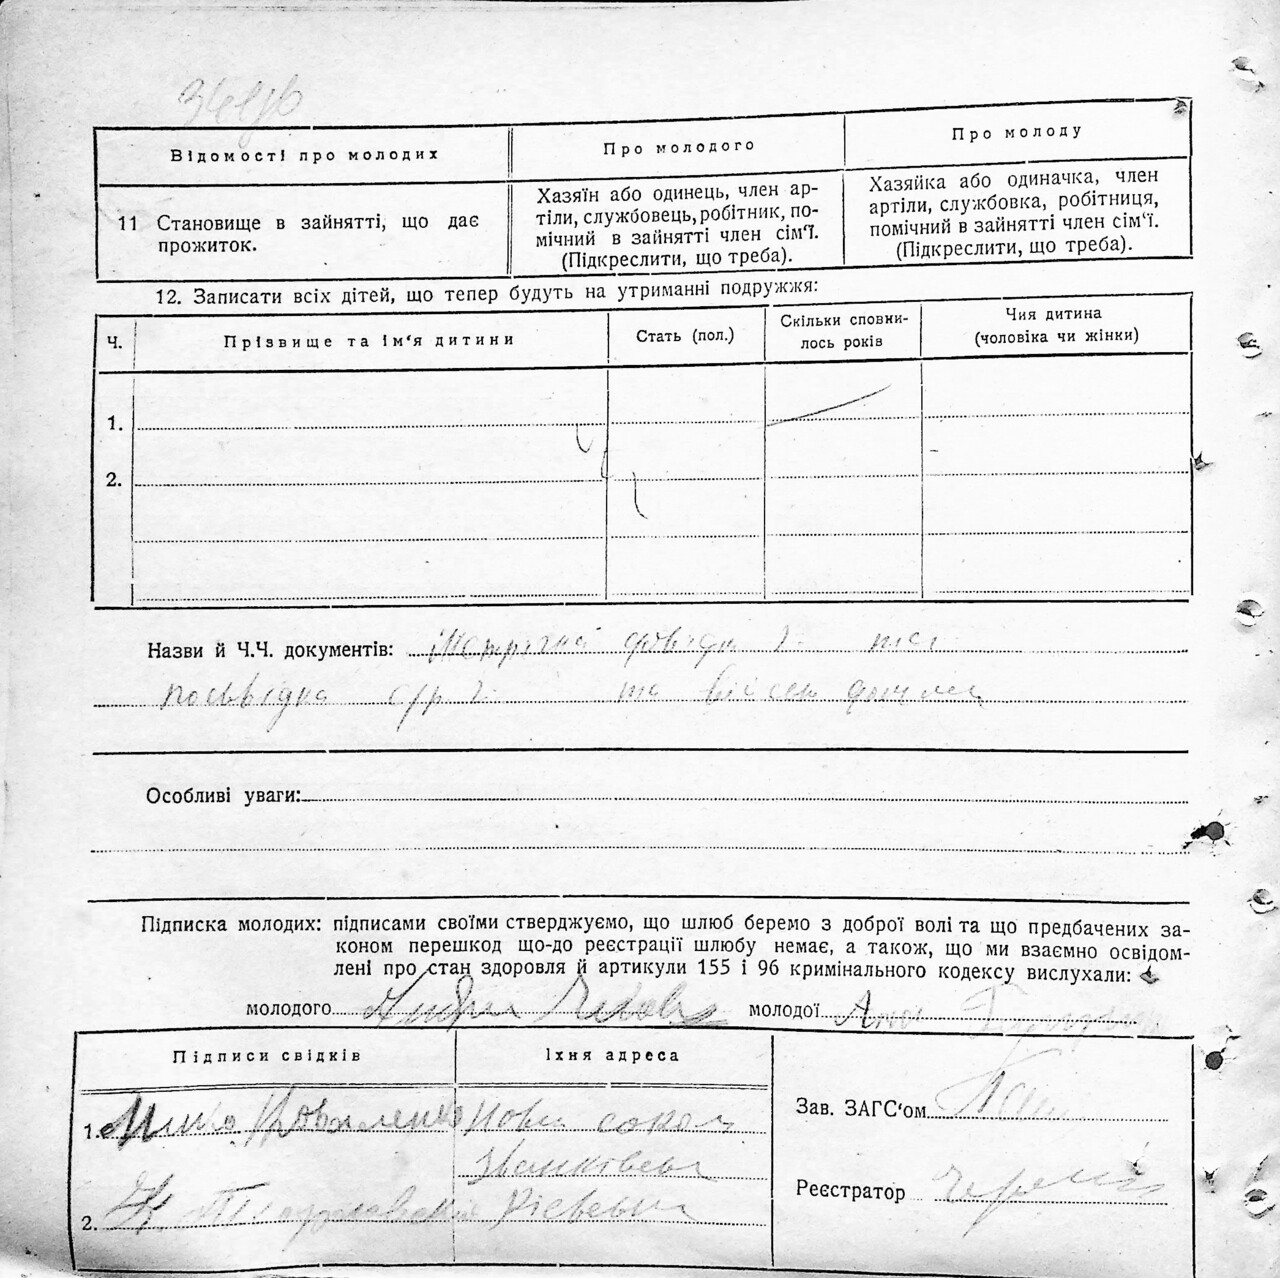 Відомості про молодих
Про молодого
Про молоду
11 Становище в зайнятті, що дає
прожиток.
Хазяїн або одинець, член ар-
тіли, службовець, робітник, по-
мічний в зайнятті член сім'ї.
(Підкреслити, що треба).
Хазяйка або одиначка, член
артіли, службовка, робітниця,
помічний в зайнятті член сім'ї.
(Підкреслити, що треба).
12. Записати всіх дітей, що тепер будуть на утриманні подружжя:
Ч.
Прізвище та ім'я дитини
Стать (пол.)
Скільки сповни-
лось років
Чия дитина
(чоловіка чи жінки)
1.
2.
Назви й Ч.Ч. документів: та
посвідка та
Особливі уваги:
Підписка молодих: підписами своїми стверджуємо, що шлюб беремо з доброї волі та що предбачених за-
коном перешкод що-до реєстрації шлюбу немає, а також, що ми взаємно освідом-
лені про стан здоровля й артикули 155 і 96 кримінального кодексу вислухали:
молодого
молодої
Підписи свідків
Їхня адреса
1. Коваленко
2.
Зав. ЗАГС'ом
Реєстратор